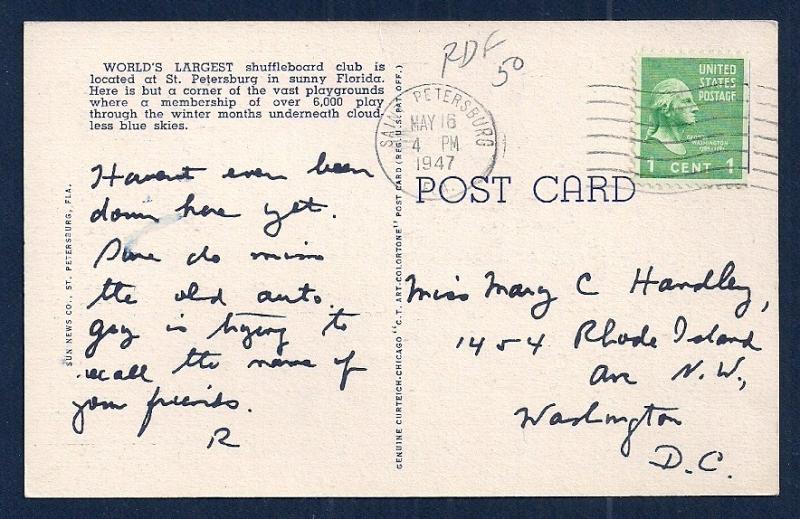 WORLD'S LARGEST shuffleboard club is
located at St. Petersburg in sunny Florida.
Here is but a corner of the vast playgrounds
where a membership of over 6,000 play
through the winter months underneath cloud-
less blue skies.
RDF
50
SAINT PETERSBURG
MAY 16
4 PM
1947
UNITED
STATES
POSTAGE
GEORGE
WASHINGTON
1 CENT 1
POST CARD
Havent even been
down here yet.
Sure do miss
the old auto.
guy is trying to
recall the name of
your friends.
R
Miss Mary C Handley,
1454 Rhode Island
Ave N.W.,
Washington
D.C.
SUN NEWS CO., ST. PETERSBURG, FLA.
GENUINE CURTEICH-CHICAGO "C.T. ART-COLORTONE" POST CARD (REG. U.S. PAT. OFF.)